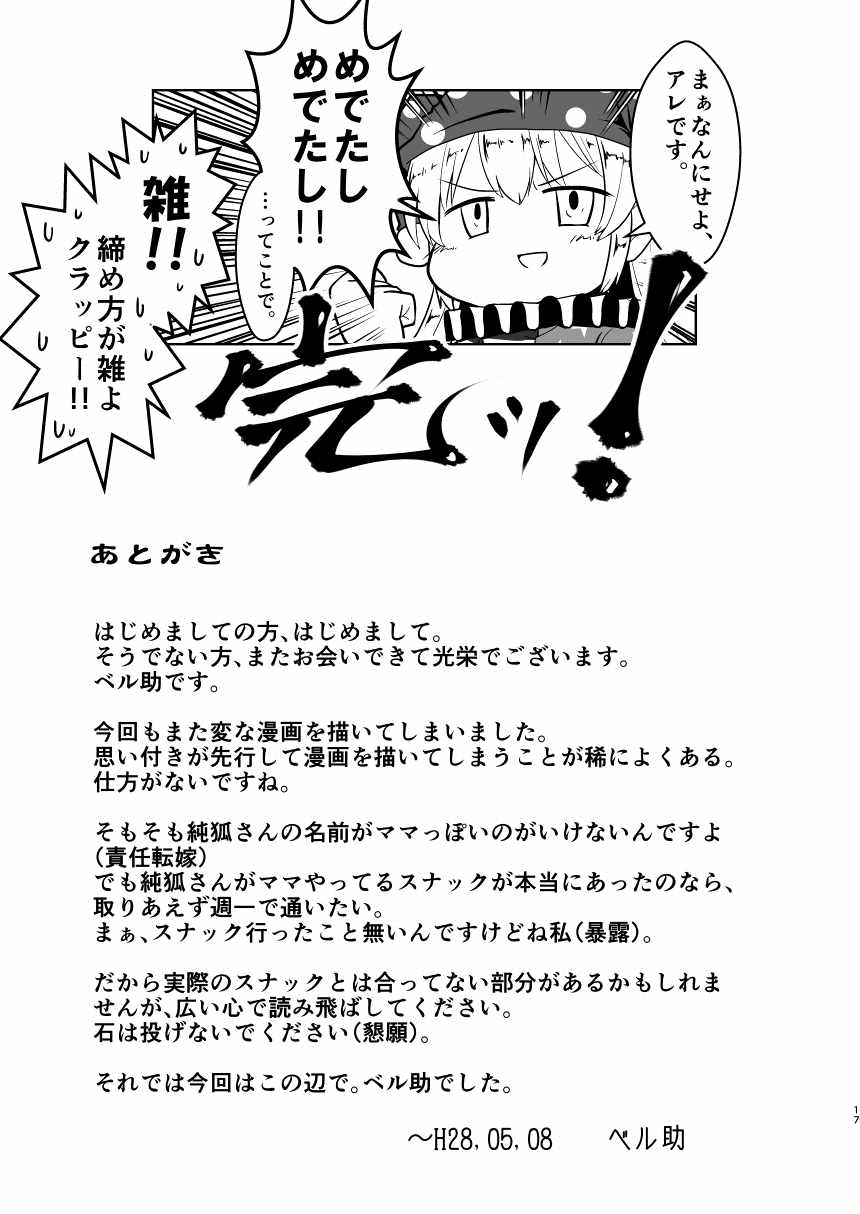 まぁなんにせよ、
アレです。
めでたし
めでたし!!
…ってことで。
雑!!
締め方が雑よ
クラッピー!!
完ッ!
あとがき
はじめましての方、はじめまして。
そうでない方、またお会いできて光栄でございます。
ベル助です。
今回もまた変な漫画を描いてしまいました。
思い付きが先行して漫画を描いてしまうことが稀によくある。
仕方がないですね。
そもそも純狐さんの名前がママっぽいのがいけないんですよ
(責任転嫁)
でも純狐さんがママやってるスナックが本当にあったのなら、
取りあえず週一で通いたい。
まぁ、スナック行ったこと無いんですけどね私(暴露)。
だから実際のスナックとは合ってない部分があるかもしれま
せんが、広い心で読み飛ばしてください。
石は投げないでください(懇願)。
それでは今回はこの辺で。ベル助でした。
～H28,05,08 ベル助
17